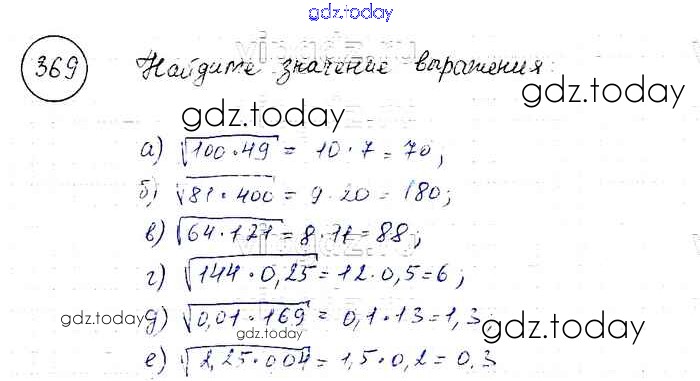 gdz.today
369 Найдите значение выражения
gdz.today
gdz.today
а) √100·49 = 10·7 = 70,
б) √81·400 = 9·20 = 180;
в) √64·121 = 8·11 = 88;
г) √144·0,25 = 12·0,5 = 6;
д) √0,01·169 = 0,1·13 = 1,3;
gdz.today
gdz.today
gdz.today
е) √2,25·004 = 1,5·0,2 = 0,3